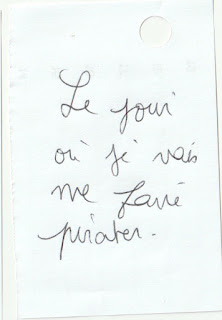 Le jour
où je vais
me faire
pirater.